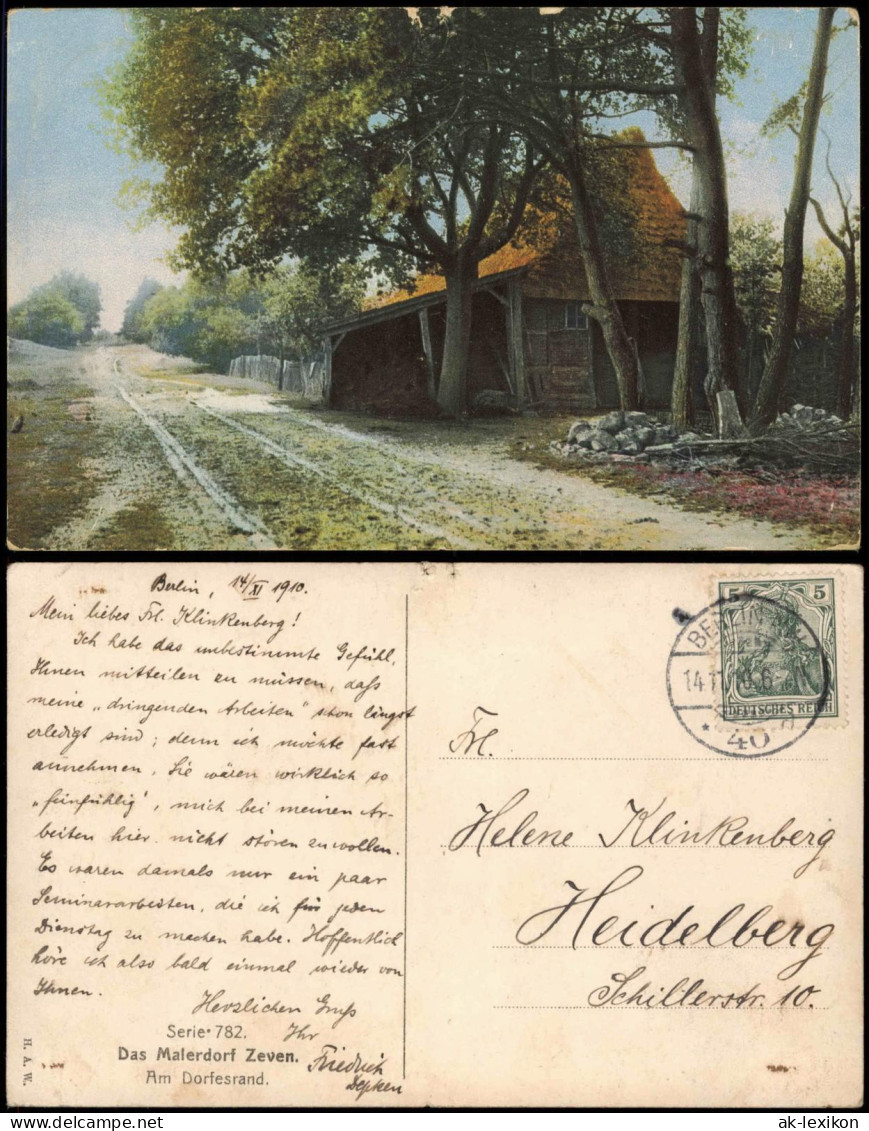 Berlin, 14/XI 1910.
Mein liebes Frl. Klinkenberg!
Ich habe das unbestimmte Gefühl,
Ihnen mitteilen zu müssen, daß
meine „dringenden Arbeiten" schon längst
erledigt sind; denn ich möchte fast
annehmen, Sie wären wirklich so
„feinfühlig', mich bei meinen Ar-
beiten hier nicht stören zu wollen.
Es waren damals nur ein paar
Seminararbeiten, die ich für jeden
Dienstag zu machen habe. Hoffentlich
höre ich also bald einmal wieder von
Ihnen.
Herzlichen Gruß
Ihr
Friedrich
Depken
Serie 782.
Das Malerdorf Zeven.
Am Dorfesrand.
H. A. W.
5 5
DEUTSCHES REICH
BERLIN
14.11.10.6
* 40
Frl.
Helene Klinkenberg
Heidelberg
Schillerstr. 10.
ak-lexikon